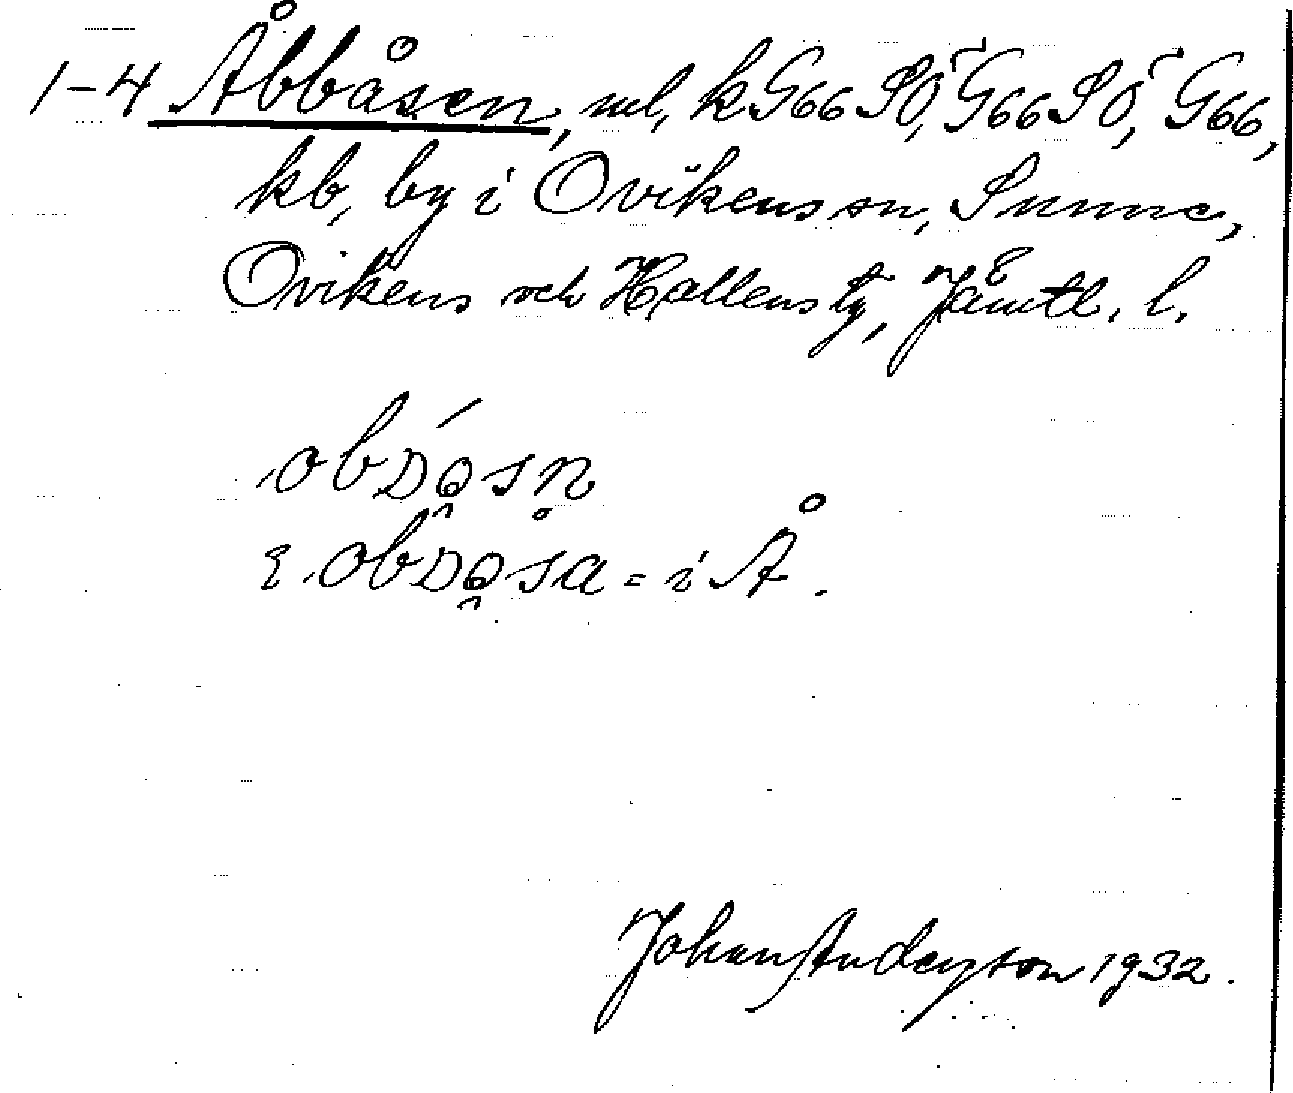 1-4 Åbbåsen, nel, k G66 SÖ, G66 SÖ, G66,
kb, by i Ovikens sn, Sunne,
Ovikens och Hallens tg, Jämtl. l.
i Å.
Johan Anderson 1932.